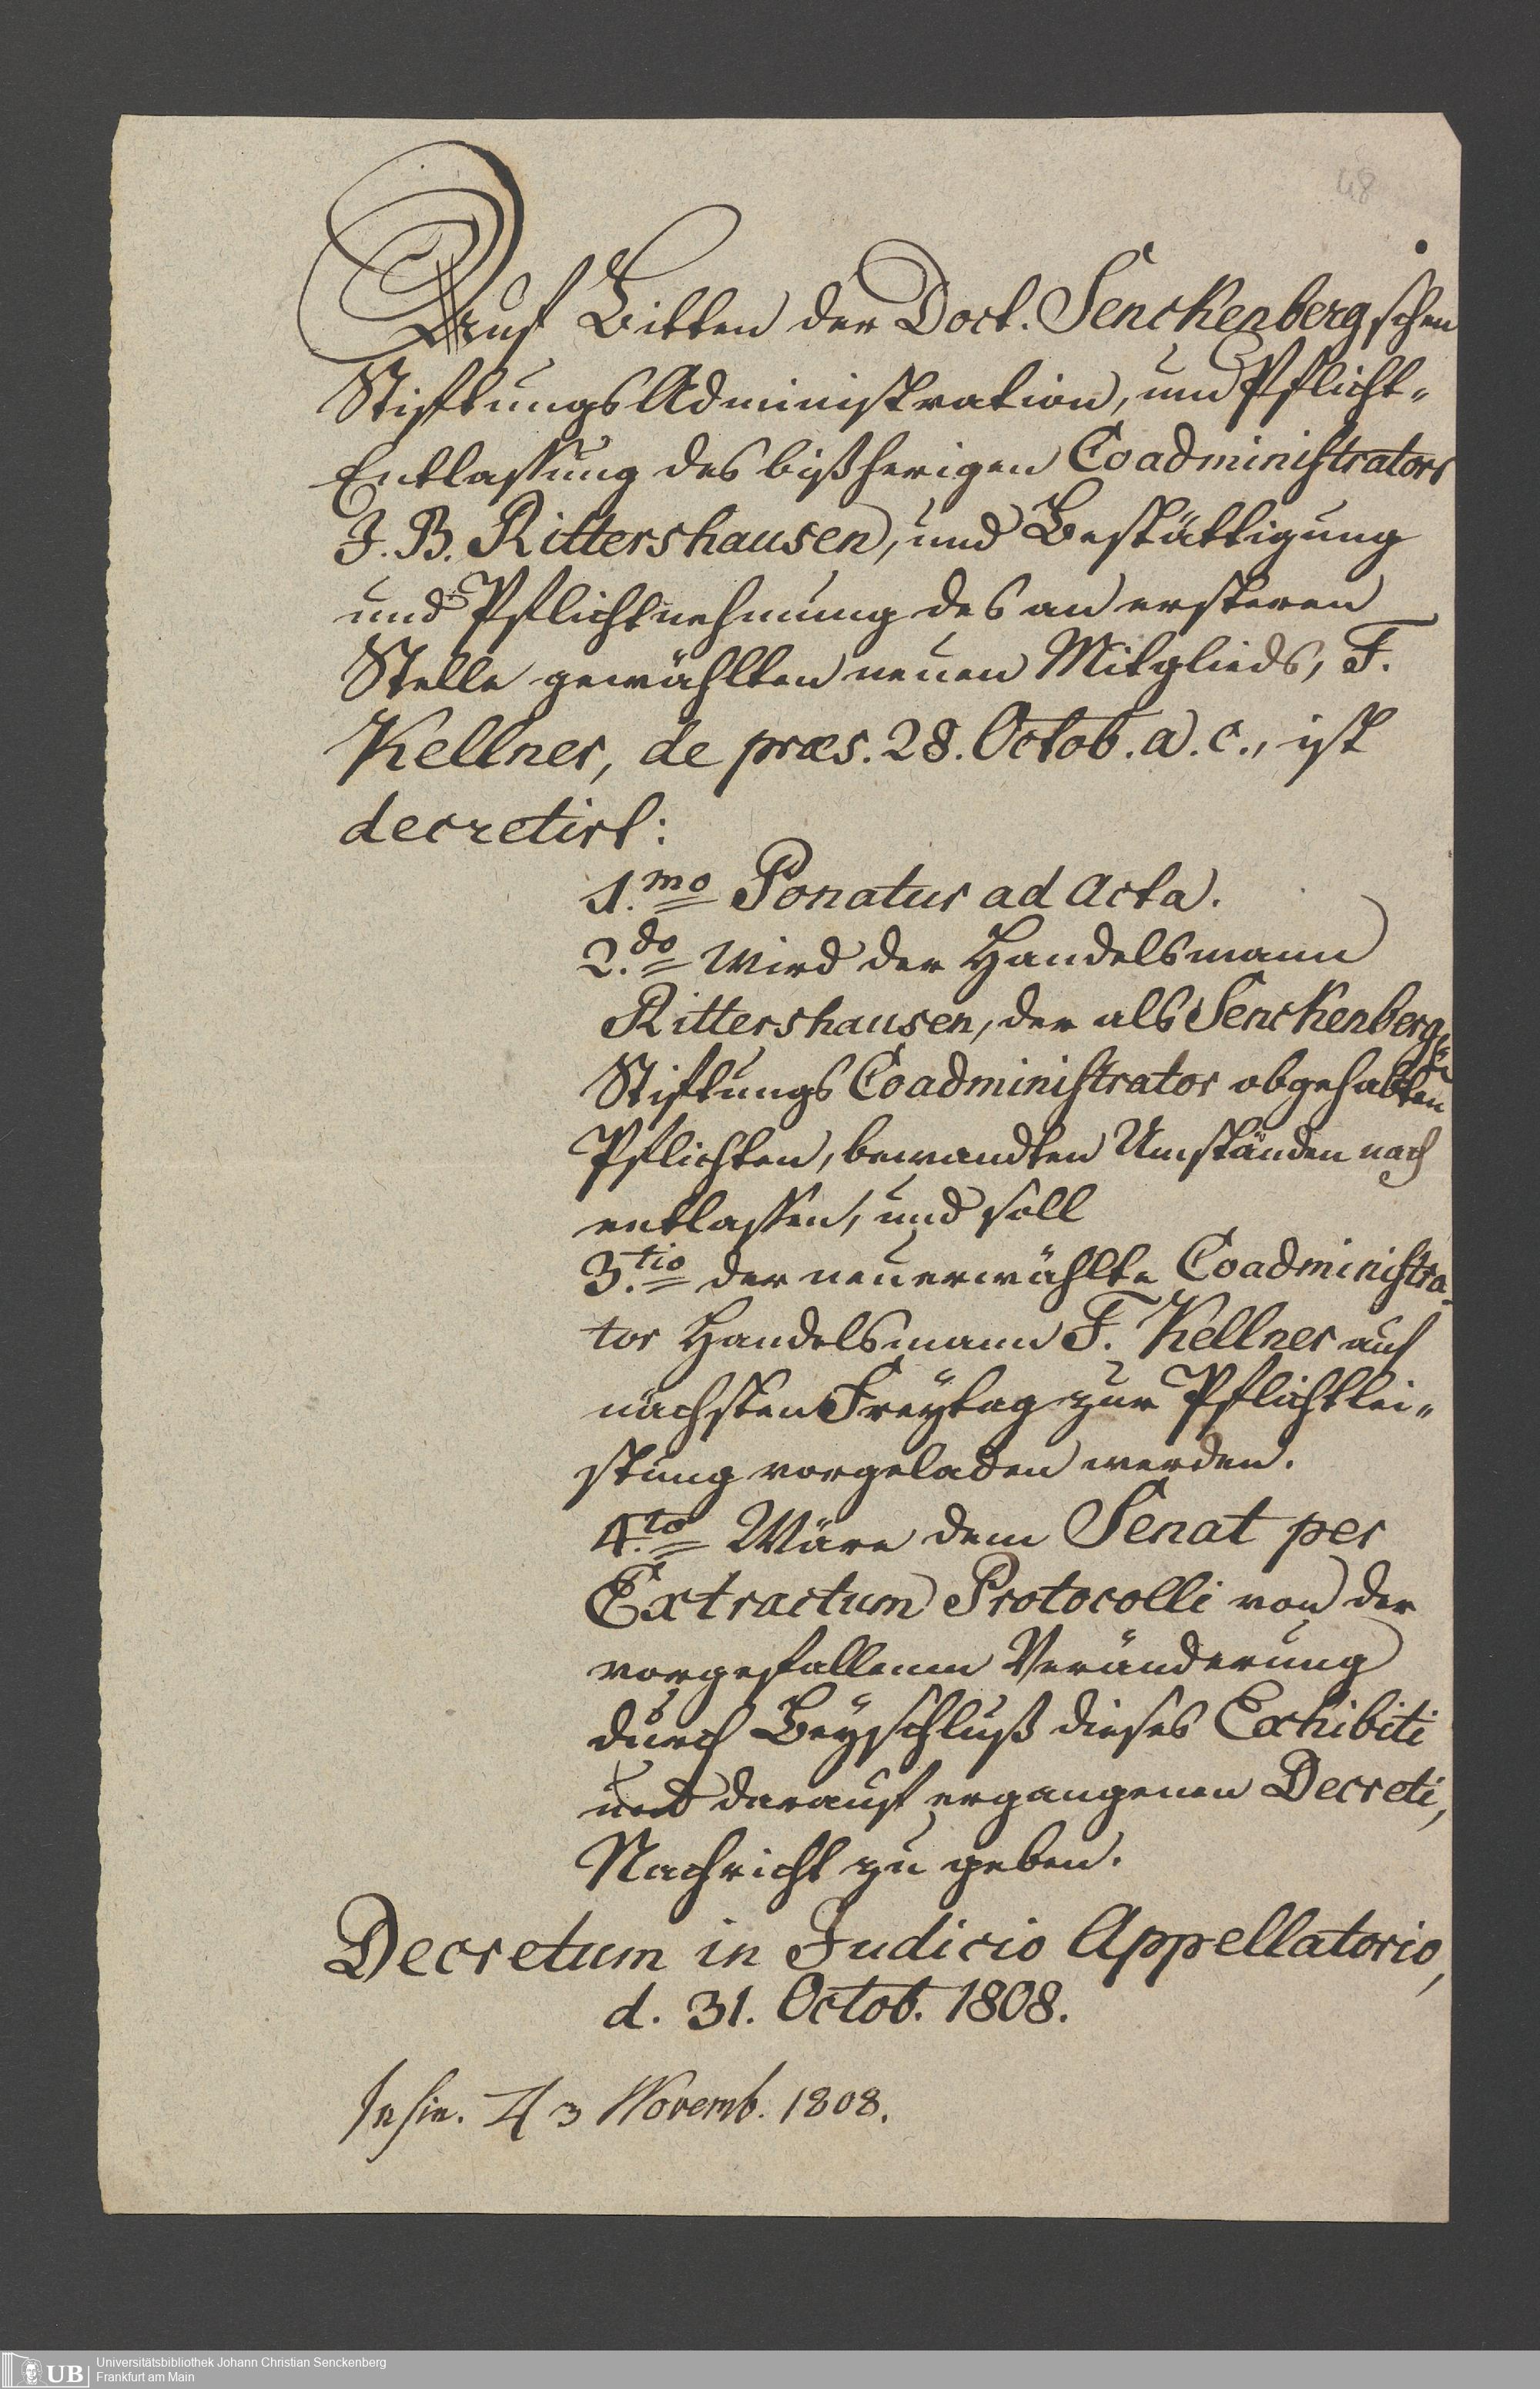 48
Auf Bitten der Doct. Senckenbergschen
Stiftungs Administration, um Pflicht-
Entlassung des bißherigen Coadministrators
J. B. Rittershausen, und Bestättigung
und Pflichtnehmung des an ersteren
Stelle gewählten neuen Mitglieds, F.
Kellner, de præs. 28. Octob. a. c., ist
decretirt:
1.mo Ponatur ad acta.
2.do Wird der Handelsmann
Rittershausen, der als Senckenberg.
Stiftungs Coadministrator obgehabten
Pflichten, bewandten Umständen nach
entlassen, und soll
3.tio der neuerwählte Coadministra-
tor Handelsmann F. Kellner auf
nächsten Freÿtag zur Pflichtlei-
stung vorgeladen werden.
4.to Wäre dem Senat per
Extractum Protocolli von der
vorgefallenen Veränderung
durch Beÿschluß dieses Exhibiti
und darauf ergangenen Decreti,
Nachricht zu geben.
Decretum in Judicio Appellatorio,
d. 31. Octob. 1808.
Insin. 3 Novemb. 1808.
UB Universitätsbibliothek Johann Christian Senckenberg
Frankfurt am Main